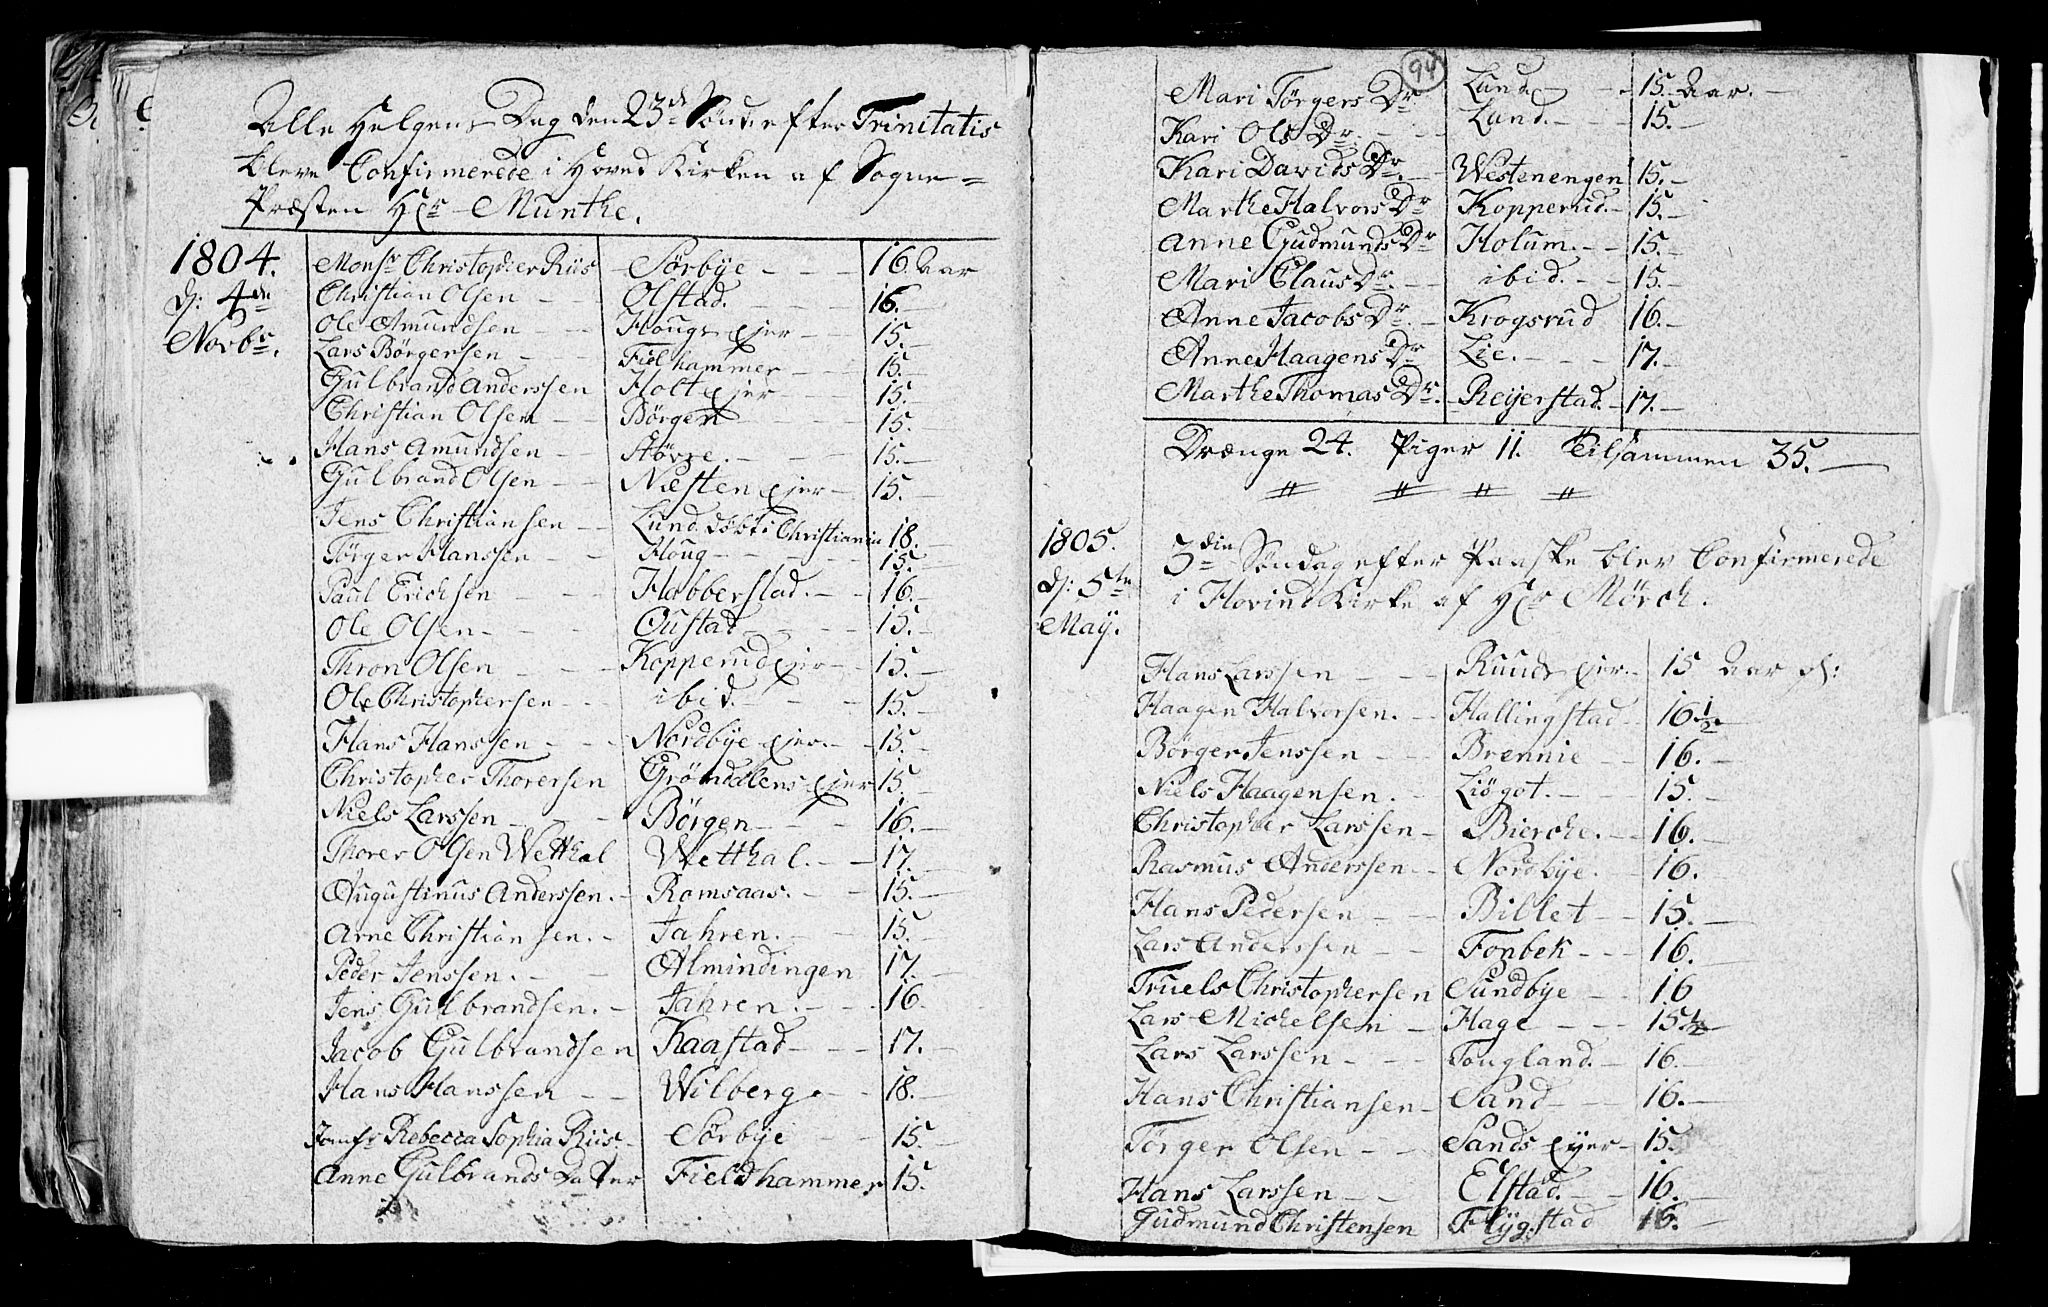 Alle Helgens Dag den 23de Sönd: efter Trinitatis
bleve Confirmerede i Hoved Kirken af Sogne-
Præsten Hr Munthe.
1804. Monsr Christopher Riis Sörbye 16. Aar
d: 4de Christian Olsen Olstad. 16.
Novbr. Ole Amundsen Hougs Ejer 15.
Lars Börgersen Fieldhammer 15.
Gulbrand Anderssen Holt Ejer 15.
Christian Olsen Börgen 15.
Hans Amundsen Större. 15.
Gulbrand Olsen Næsten Ejer 15.
Jens Christiansen Lund. döbt i Christiania 18.
Törger Hanssen Houg 15.
Paul Erichsen Habberstad. 16.
Ole Olsen Oustad 15.
Thron Olsen Kopperud Ejer 15.
Ole Christophersen ibid. 15.
Hans Hanssen Nordbye Ejer 15.
Christopher Thorersen Gröndalens Ejer 15.
Niels Larssen Börgen 16.
Thorer Olsen Wetthal Wetthal. 17.
Augustinus Anderssen. Romsaas. 15.
Arne Christiansen. Jahren. 15.
Peder Jenssen. Almindingen 17.
Jens Gulbrandsen. Jahren. 16.
Jacob Gulbrandsen Kaastad 17.
Hans Hanssen Wilberg 18.
Jomfr Rebecca Sophia Riis. Sörbye 15.
Anne Gulbrands Datter Fieldhammer 15.
94
Mari Törgers Dr Lund. 15. Aar.
Kari Ols Dr. Lund. 15.
Kari Davids Dr. Westenengen 15.
Marthe Halvors Dr Kopperud. 15.
Anne Gudmunds Dr Holum. 15.
Mari Claus Dr. ibid. 15.
Anne Jacobs Dr. Krogsrud 16.
Anne Haagens Dr Lie. 17.
Marthe Thomas Dr. Reijerstad. 17.
Drænge 24. Piger 11. Tilsammen 35.
1805. 3die Söndag efter Paaske blev Confirmerede
d: 5te i Hovind Kirke af Hr Mörch.
Maij.
Hans Larssen Ruuds Ejer. 15 Aar
Haagen Halvorsen. Hallingstad 16 1/2
Börger Jenssen Brennie 16.
Niels Haagensen. Liögot. 15.
Christopher Larssen Bierche. 16.
Rasmus Anderssen Nordbye. 16.
Hans Pedersen Billet 15.
Lars Anderssen Fonbek 16.
Truels Christophersen Sundbye 16
Lars Michelsen Hage 15 1/2
Lars Larssen Tougland. 16.
Hans Christiansen Sand 16.
Törger Olsen Sands Ejer 15
Hans Larssen Elstad. 16.
Gudmund Christensen Flÿgstad 16.